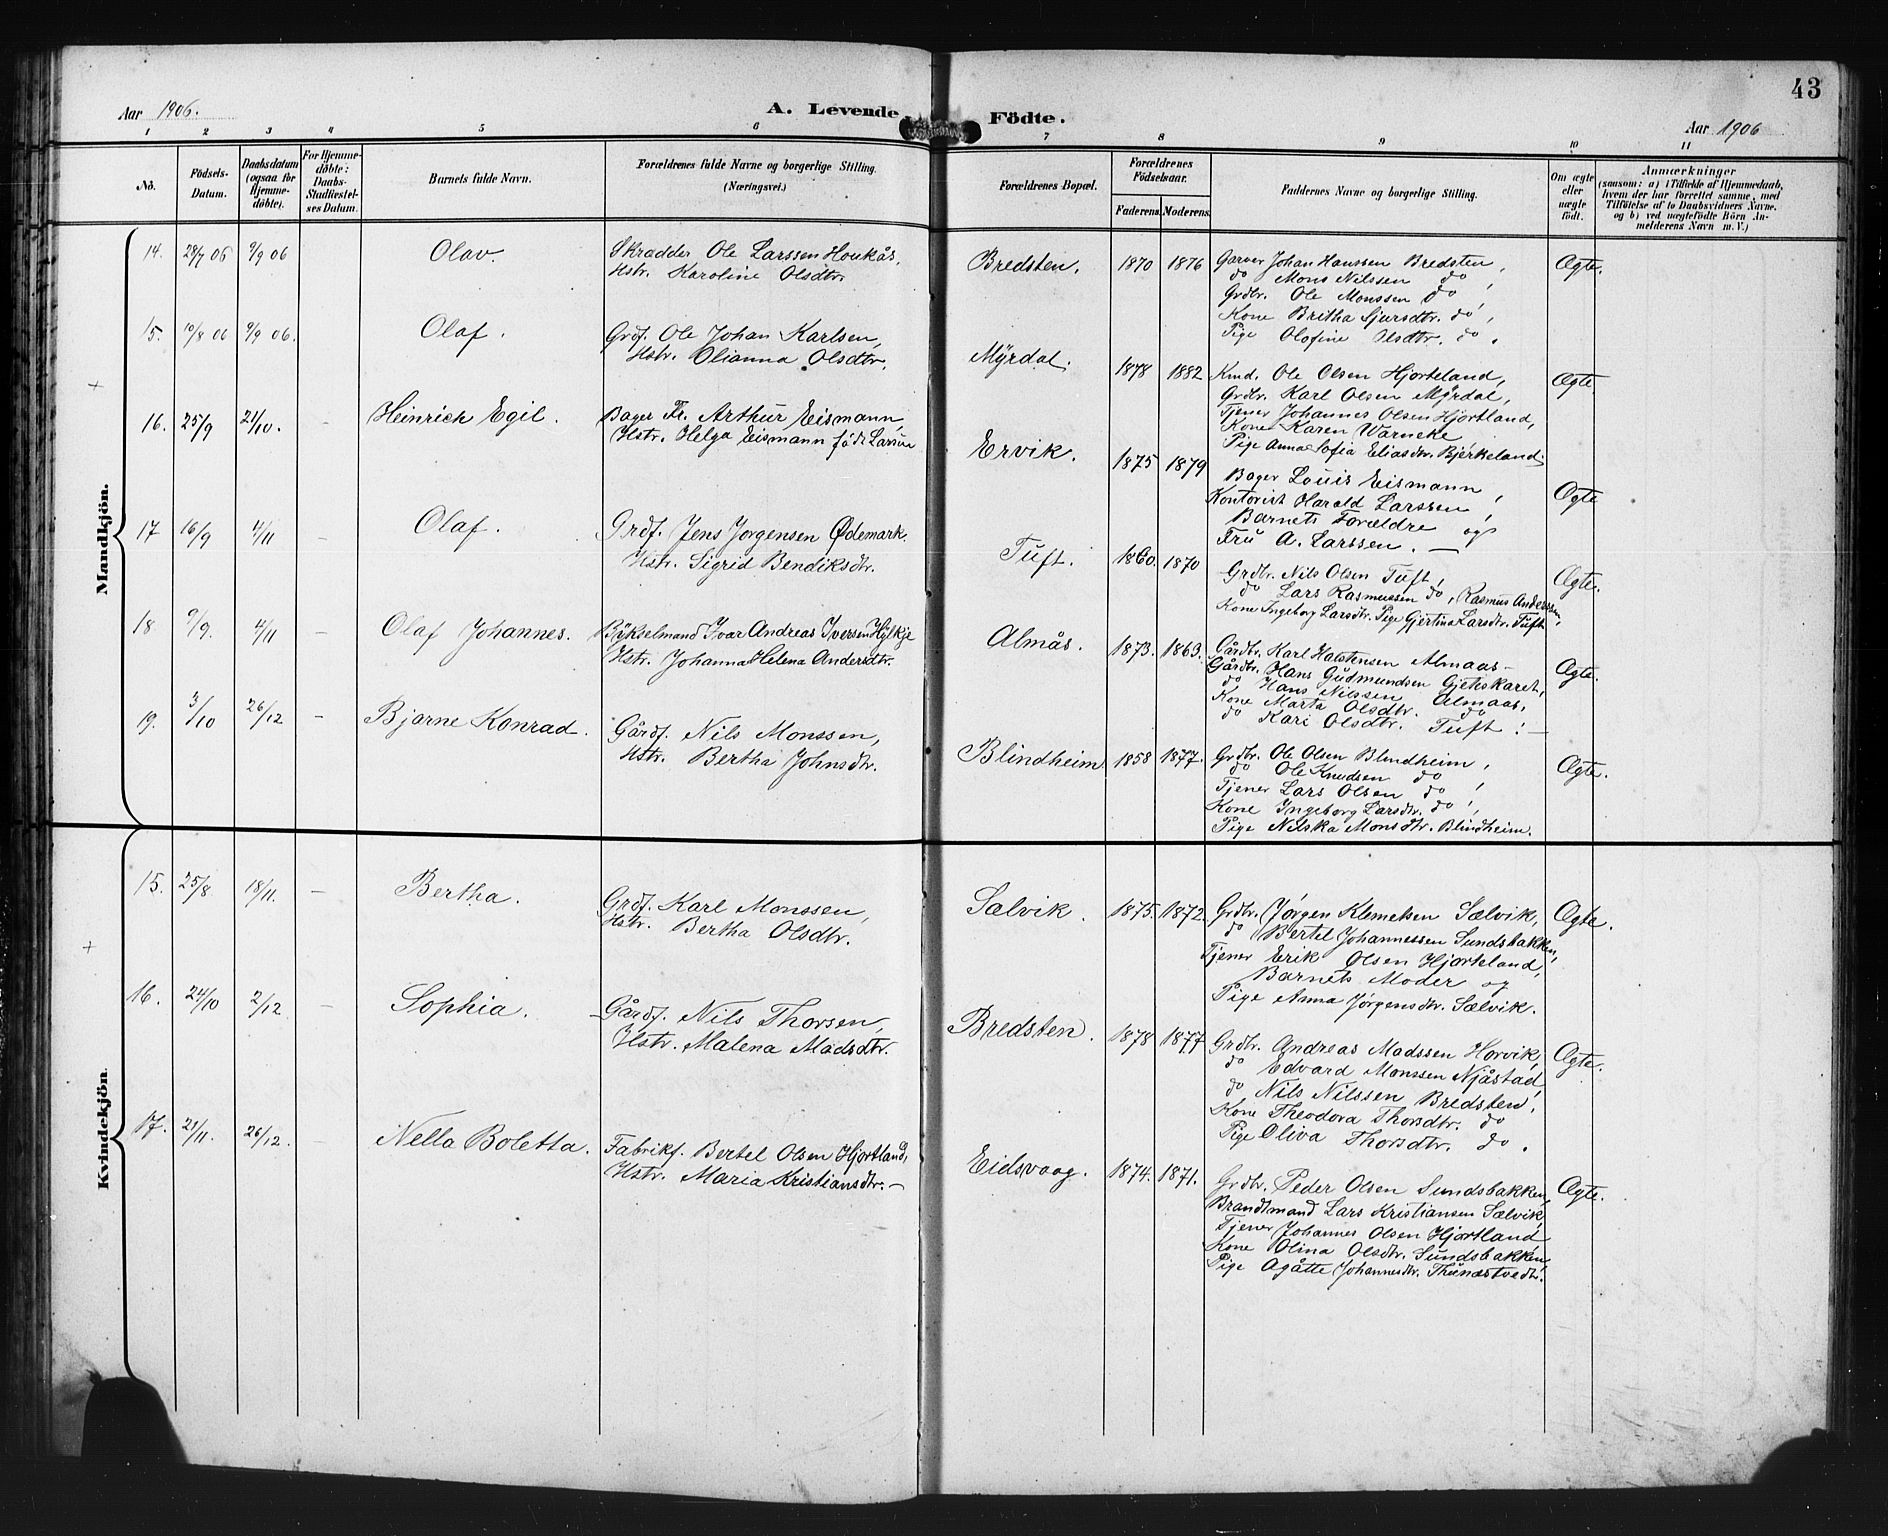 43
Aar 1906.
A. Levende Födte.
Aar 1906
1 2 3 4 5 6 7 8 9 10 11
No.
Födsels-
Datum.
Daabsdatum
(ogsaa for
Hjemme-
döbte).
For Hjemme-
döbte:
Daabs-
Stadfæstel-
ses Datum.
Barnets fulde Navn.
Forældrenes fulde Navne og borgerlige Stilling.
(Næringsvei.)
Forældrenes Bopæl.
Forældrenes
Födselsaar.
Faderens.
Moderens.
Faddernes Navne og borgerlige Stilling.
Om ægte
eller
uægte
födt.
Anmærkninger
(saasom: a) i Tilfælde af Hjemmedaab,
hvem der har forrettet samme, med
Tilföielse af to Daabsvidners Navne.
og b) ved uægtefödte Börn An-
melderens Navn m. V.)
Mandkjön.
14. 28/7 06 9/9 06 Olav.
Skrædder Ole Larssen Haukås,
Hstr. Karoline Olsdtr.
Bredsten. 1870 1876
Garver Johan Hanssen Bredsten,
do Mons Nilssen do,
Grdbr. Ole Monssen do
Kone Britha Sjursdtr. do,
Pige Olofine Olsdtr. do.
Ægte.
15. 10/8 06 9/9 06. Olaf.
Grdf. Ole Johan Karlsen,
Hstr. Olianna Olsdtr.
Myrdal. 1878 1882
Kmd. Ole Olsen Hjorteland,
Grdbr. Karl Olsen Myrdal,
Tjener Johannes Olsen Hjortland,
Kone Karen Warneke
Pige Anna Sofia Eliasdtr. Bjerkeland.
Ægte.
16. 25/9 21/10. - Heinrich Egil.
Bager Fr. Arthur Eismann,
Hstr. Helga Eismann född
Ervik. 1875 1879
Bager Louis Eismann,
Kontorist Harald Larssen,
Barnets Forældre og
Fru A. Larssen. —
Ægte
17 16/9 4/11 - Olaf.
Grdf. Jens Jørgensen Ødemark.
Hstr. Sigrid Bendiksdtr.
Tuft. 1860. 1870
Grdbr. Nils Olsen Tuft,
do Lars Rasmussen do, Rasmus Anderssen,
Kone Ingeborg Larsdtr. Pige Gjertina Larsdtr. Tuft
Ægte.
18. 9/9. 4/11 - Olaf Johannes.
Bykselmand Ivar Andreas Iversen Hylkje
Hstr. Johanna Helena Andersdtr.
Almås. 1873. 1863.
Gårdbr. Karl Halstensen Almaas-
Gårdbr. Hans Gudmundsen Gjeteskaret,
do Hans Nilssen Almaas,
Kone Marta Olsdtr. do
do Kari Olsdtr. Tuft. —
Ægte.
19. 3/10 26/12 - Bjarne Konrad.
Gårdf. Nils Monssen,
Hstr. Bertha Johnsdtr.
Blindheim 1858 1877.
Grdbr. Ole Olsen Blindheim,
do Ole Knudsen do
Tjener Lars Olsen do,
Kone Ingeborg Larsdtr. do,
Pige Nilska Monsdtr. Blindheim.
Ægte.
Kvindekjön
15. 25/8 18/11. - Bertha.
Grdf. Karl Monssen,
Hstr. Bertha Olsdtr.
Sælvik. 1875. 1872.
Grdbr. Jørgen Klemetsen Sælvik,
do Bertel Johannessen Sundsbakken,
Tjener Erik Olsen Hjorteland,
Barnets Moder og
Pige Anna Jørgensdtr. Sælvik.
Ægte.
16. 24/10 2/12 - Sophia.
Gårdf. Nils Thorsen,
Hstr. Malena Madsdtr.
Bredsten. 1878 1877
Grdbr. Andreas Madssen Horvik,
do Edvard Monssen Njåstad,
do Nils Nilssen Bredsten,
Kone Theodora Thorsdtr. do
Pige Oliva Thorsdtr. do.
Ægte.
17. 21/11. 26/12. - Nella Boletta.
Fabrikf. Bertel Olsen Hjortland,
Hstr. Maria Kristiansdtr. –
Eidsvaag. 1874. 1871.
Grdbr. Peder Olsen Sundsbakken,
Brandtmand Lars Kristiansen Sælvik,
Tjener Johannes Olsen Hjortland
Kone Olina Olsdtr. Sundsbakken,
Pige Agåtte Johannesdtr. Thunæstvedt.
Ægte.